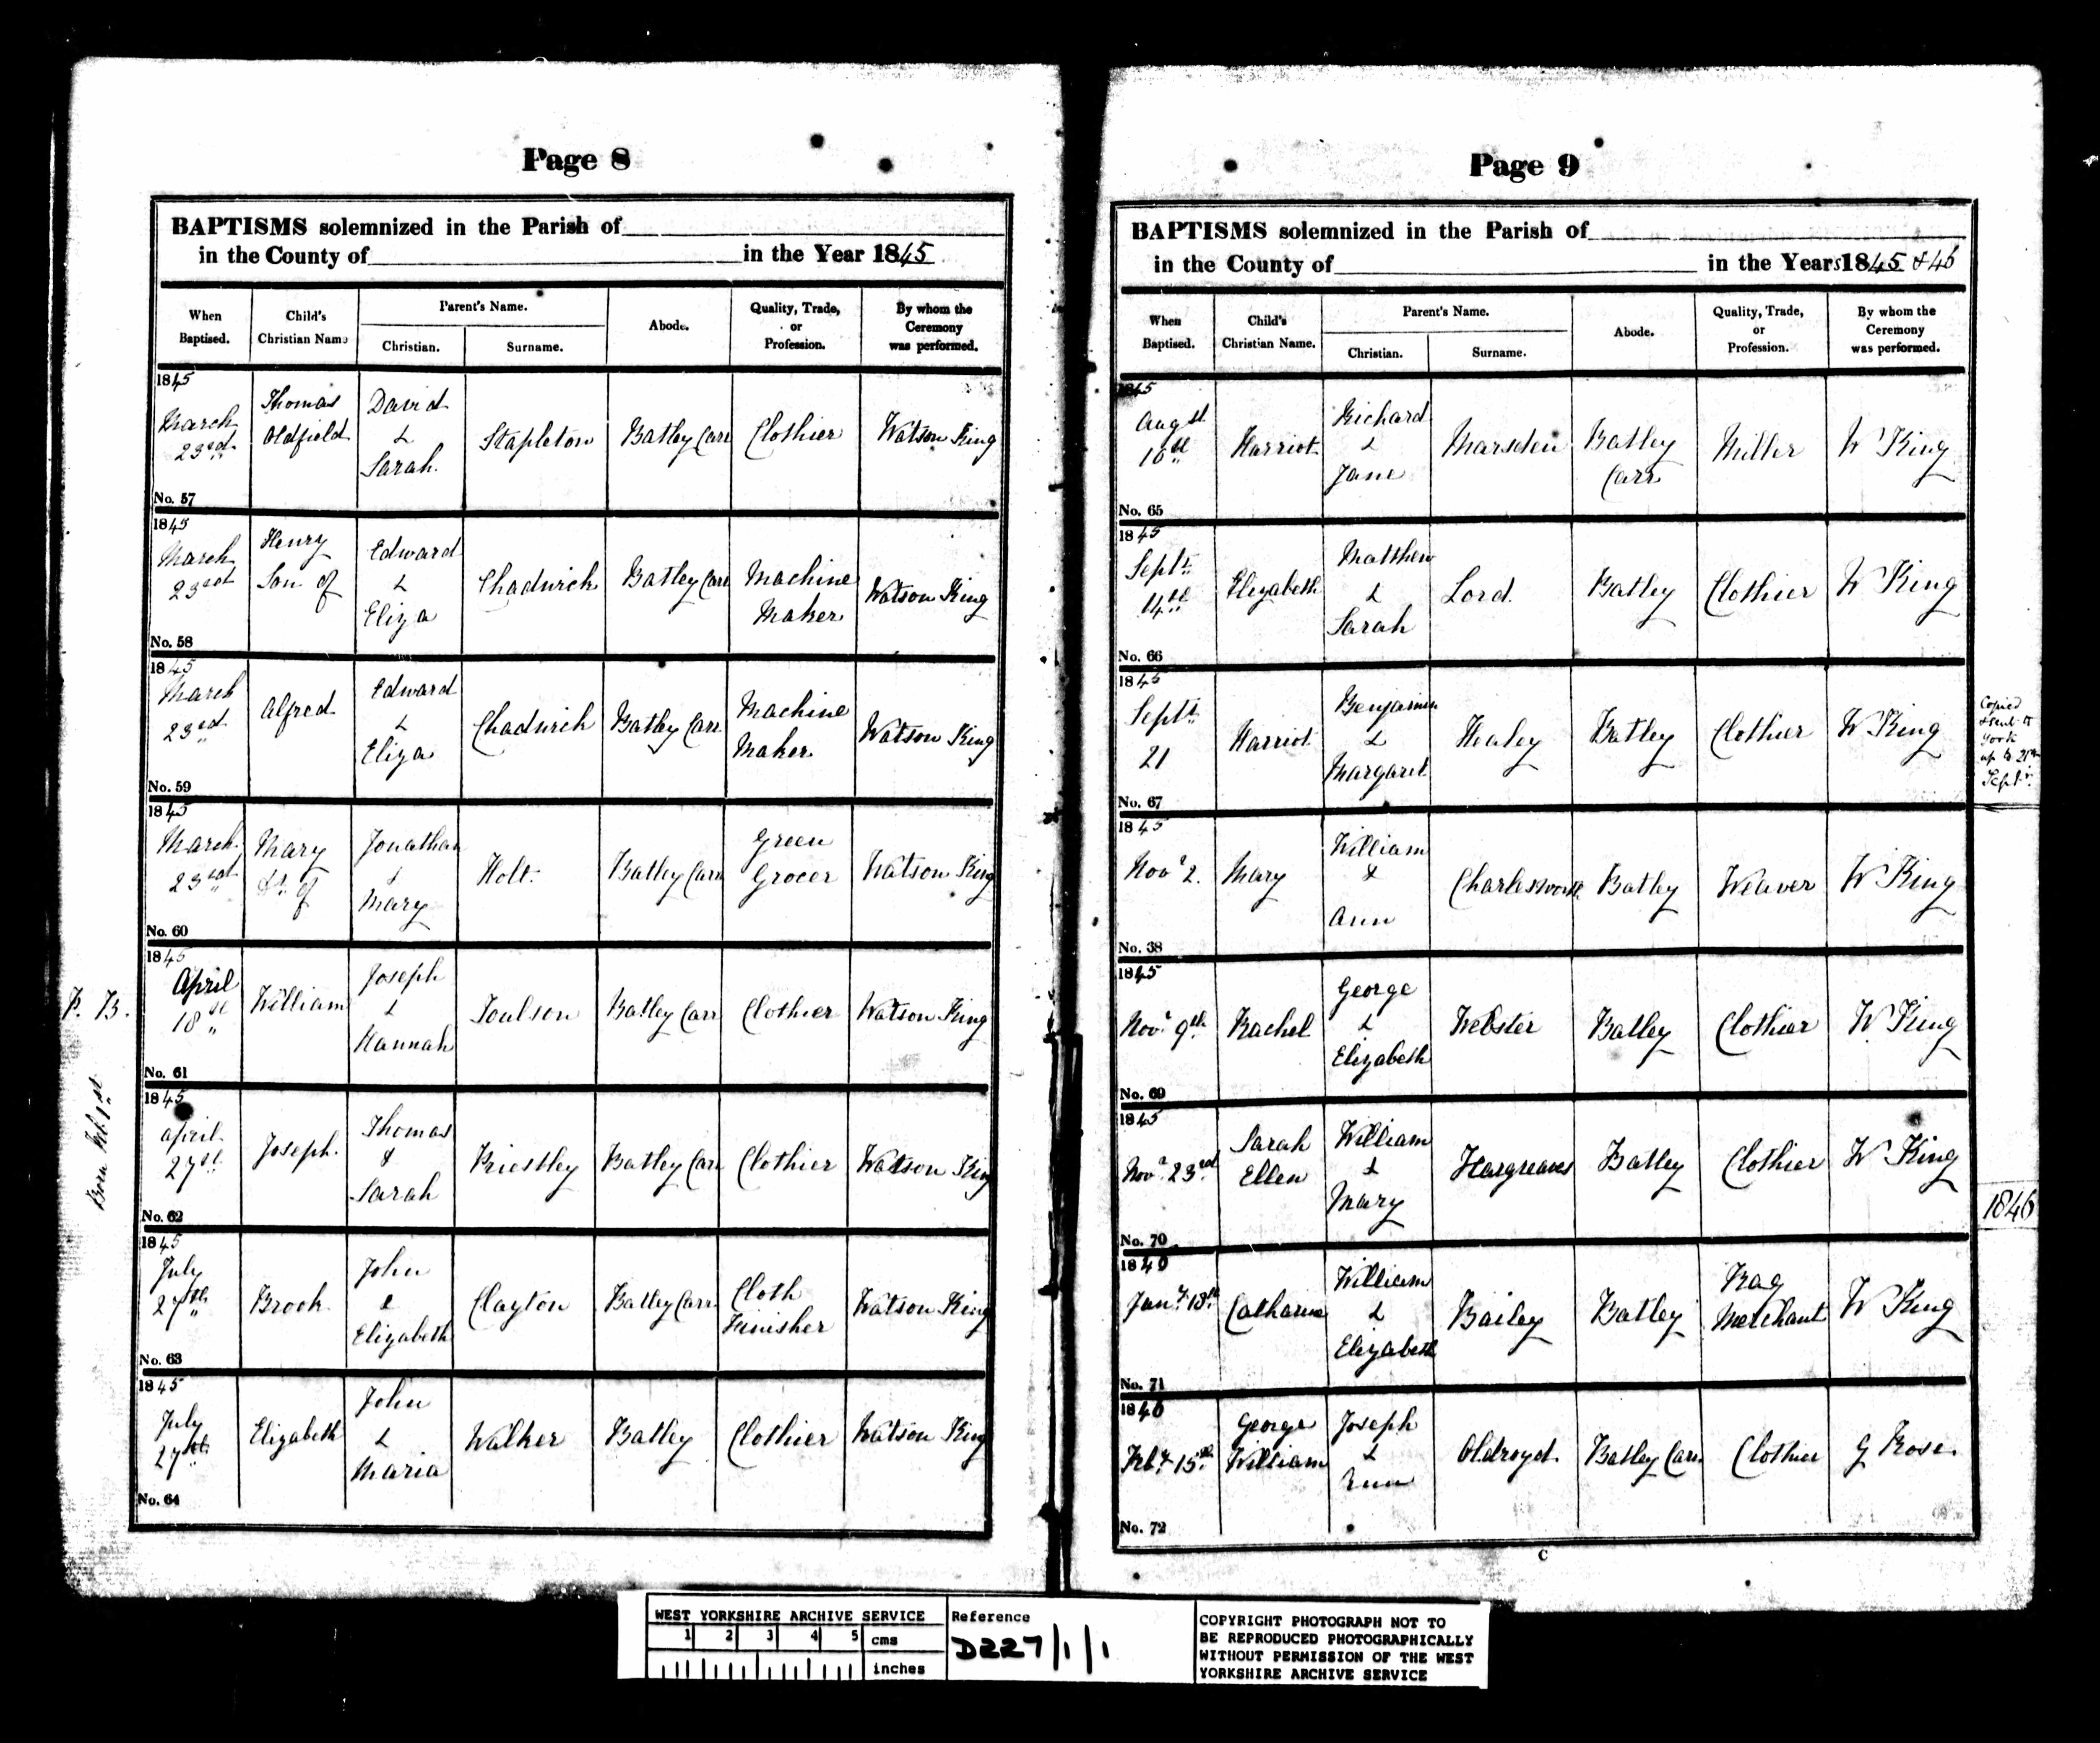 Page 8
BAPTISMS solemnized in the Parish of
in the County of in the Year 1845
When Baptised. Child's Christian Name Parent's Name. Christian. Surname. Abode. Quality, Trade, or Profession. By whom the Ceremony was performed.
1845 March 23rd Thomas Oldfield David & Sarah Stapleton Batley Carr Clothier Watson King
No. 57
1845 March 23rd Henry Son of Edward & Eliza Chadwick Batley Carr Machine Maker Watson King
No. 58
1845 March 23rd Alfred Edward & Eliza Chadwick Batley Carr Machine Maker Watson King
No. 59
1845 March 23rd Mary Dr. of Jonathan & Mary Holt Batley Carr Green Grocer Watson King
No. 60
P. B.
1845 April 18th William Joseph & Hannah Toulson Batley Carr Clothier Watson King
No. 61
Born Feb. 1st
1845 April 27th Joseph Thomas & Sarah Priestley Batley Carr Clothier Watson King
No. 62
1845 July 27th Brook John & Elizabeth Clayton Batley Carr Cloth Finisher Watson King
No. 63
1845 July 27th Elizabeth John & Maria Walker Batley Clothier Watson King
No. 64
Page 9
BAPTISMS solemnized in the Parish of
in the County of in the Years 1845 & 46
When Baptised. Child's Christian Name. Parent's Name. Christian. Surname. Abode. Quality, Trade, or Profession. By whom the Ceremony was performed.
1845 Augst 10th Harriot Richard & Jane Marsden Batley Carr Miller W King
No. 65
1845 Septr. 14th Elizabeth Matthew & Sarah Lord Batley Clothier W King
No. 66
1845 Septr. 21 Harriot Benjamin & Margaret Healey Batley Clothier W King
No. 67
Copied & sent to York up to 21st Septr.
1845 Novr 2. Mary William & Ann Charlesworth Batley Weaver W King
No. 38
1845 Novr 9th Rachel George & Elizabeth Webster Batley Clothier W. King
No. 69
1845 Novr. 23rd Sarah Ellen William & Mary Hargreaves Batley Clothier W King
No. 70
1846
1846 Jany. 18th Catharine William & Elizabeth Bailey Batley Rag Merchant W King
No. 71
1846 Feby. 15th George William Joseph & Ann Oldroyd Batley Carr Clothier G Rose
No. 72
C
WEST YORKSHIRE ARCHIVE SERVICE
1 2 3 4 5 cms
inches
Reference
D227/1/1
COPYRIGHT PHOTOGRAPH NOT TO
BE REPRODUCED PHOTOGRAPHICALLY
WITHOUT PERMISSION OF THE WEST
YORKSHIRE ARCHIVE SERVICE